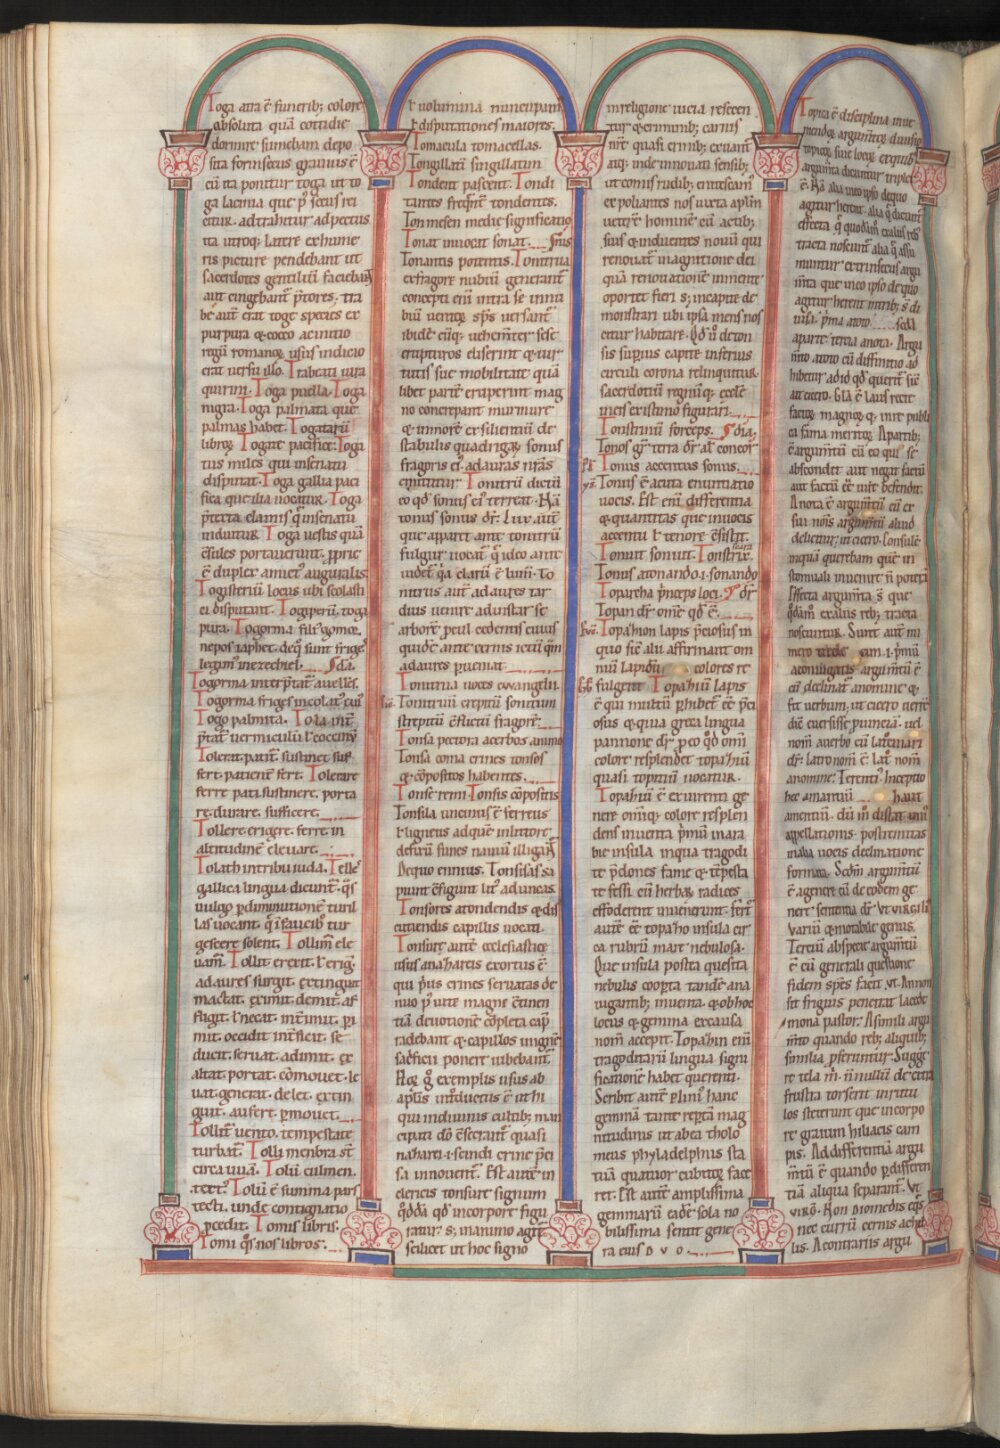 Toga atra ē funerib; colore
absoluta quā cottidie
dormire sumebam depo
sita forinsecus grauius ē
cū ita ponitur toga ut to
ga lacinia que p̄ secus rei
citur. adtrahitur ad pectus
ita utroq; latere ex hume
ris picture pendebant ut
sacerdotes gentiliū faciebant
aut cingebant p̄tores. tra
be aut̄ erat toge species ex
purpura & cocco ac initio
regū romanoꝝ usus indicio
erat uersu illo. Trabeati cura
quirini. Toga puella. Toga
nigra. Toga palmata que
palmas habet. Togatarū
libroꝝ. Togate pacifice. Toga
tus miles qui in senatu
disputat. Toga gallia paci
fica que ilia uocatur. Toga
p̄texta clamis q̄ in senatu
induitur. Toga uestis quā
c̄sules portauerunt. p̄prie
ē duplex amict' auguralis
Togisteriū locus ubi scolasti
ci disputant. Togiperū. toga
pura. Togorma fili' gomer.
nepos iaphet. de q̄ sunt friges
legim' in ezechiel. S dā.
Togorma interp̄tat' auelles.
Togorma friges incolat' cui'
Togo palmita. Tola int̄
p̄tat̄ uermiculū l' coccinū
Tolerat. patit̄. sustinet. suf
fert. patienter fert. Tolerare
ferre. pati. sustinere. porta
re. durare. sufficere.
Tollere. erigere. ferre. in
altitudinē eleuare.
Tolath in tribu iuda. Telle
gallica lingua dicunt̄. q̄s
uulgo p diminutionē turil
las uocant. q̄ i faucib; tur
gescere solent. Tollim̄ ele
uam̄. Tollit. erexit. l' eriḡ.
ad aures surgit. extinguit
mactat. eximit. demit. af
fligit. l' necat. int̄imit. p̄i
mit. occidit. int̄ficit. se
ducit. seruat. adimit. ex
altat. portat. cōmouet. le
uat. generat. delet. extin
guit. aufert. p̄mouet.
Tollit̄ uento. tempestate
turbat̄. Tolli menbra st̄
circa uuā. Tolū culmen.
tect'. Tolū ē summa pars
tecti. unde contignatio
p̄cedit. Tomis libris.
Tomi q̄s nos libros.
l' uolumina nuncupam̄
l' disputationes maiores.
Tomacula tomacellas.
Tongillati singillatim
Tondent pascent. Tondi
tantes freq̄nt̄ tondentes.
Ton mesen medie significatio
Tonat inuocat. sonat. S nus
Tonantis potentis. Tonitrua
ex fragore nubiū generant̄
concepti eni intra se inni
biū uentoꝝ sp̄s uersant̄
ibidē cūq; uehem̄ter sese
erupturos eliserint & uir
tutis sue mobilitate quā
libet partē eruperint mag
no concrepant murmure
& in more exsilientiū de
stabulis quadrigaꝝ sonus
fragoris ei' ad aures nr̄as
emittitur. Tonitrū dictū
eo qd̄ sonus ei' terreat. Nā
tonus sonus dr̄. Lux aut̄
que apparet ante tonitrū
fulgur uocat̄ q̄ ideo ante
uidet̄ q̄a clarū ē lum̄. To
nitrus aut̄ ad aures tar
dius uenire aduistar se
arborē p̄cul cedentis cuius
quidē ante cernis ictū q̄m
ad aures p̄ueniat.
Tonitrua uoces euangelii.
Tonitruū crepitū sonitum
strepitū c̄flictū fragorē.
Tonsa pectora acerbos animo
Tonsa coma crines tonsos
& cōpositos habentes.
Tonse remi. Tonsis cōpositis
Tonsila uncinus ē ferreus
l' ligneus ad quē in littore
defixū funes nauiū illigant̄
De quo ennius. Tonsilas sa
piunt c̄figunt lit' aduncas.
Tonsores a tondendis & dis
cutiendis capillis uocati.
Tonsure autē ecclesiastice
usus a nazareis exortus ē
qui p̄us crines seruatas de
nuo p̄ uite magne c̄tinen
tiā deuotionē cōpleta cap̄
radebant & capillos in igne
sacficii ponere iubebant̄.
Hoꝝ g̊ exemplis usus ab
apl̄is introductus ē ut hi
qui in diuinis cultib; man
cipati dō c̄secrant̄ quasi
nazarei. i. sc̄i dei crine p̄ci
sa innouent̄. Est autē in
clericis tonsure signum
q̊ddā qd̄ in corpore figu
ratur. s; in animo agit̄
scilicet ut hoc signo
in religione uicia resecen
tur & criminib; carnis
nr̄e quasi crinib; exuant̄
atq; inde innouati sensib;
ut comis rudib; enitescam̄
expoliantes nos iuxta apl̄m
ueterē hominē cū actib;
suis & induentes nouū qui
renouat̄ in agnitione dei
quā renouationē in mente
oportet fieri s; in capite de
monstrari ubi ipsa mens nos
citur habitare. Qd̄ ū deton
sis sup̄ius capite inferius
circuli corona relinquitur
sacerdotiū regnūq; eccl̄e
in eis existimo figurari.
Tonstrinū forceps. S dia.
Tonos gr̄. terra dr̄ al' concor
Tonus accentus sonus.
Tonus ē acuta enuntiatio
uocis. Est enī differentia
& quantitas que in uocis
accentu l' tenore c̄sistit.
Tonuit sonuit. Tonstrix
Tonus a tonando. i. sonando
Toparcha p̄nceps loci.
Topan dr̄ om̄e qd̄ ē.
Topazion lapis p̄ciosus in
quo sic alii affirmant om
niū lapidū colores re
fulgent. Topaziū lapis
ē qui multū phibet̄ ee p̄ci
osus & quia greca lingua
pannone dr̄. p eo q̊d om̄i
colore resplendet topaziū
quasi topitiū uocatur.
Topaziū ē ex uirenti ge
nere omniq; colore resplen
dens inuenta p̄mū in ara
bie insula in qua tragodi
te p̄dones fame & tēpesta
te fessi cū herbaꝝ radices
effoderent inuenerunt. fert̄
autē ēe topazio insula cir
ca rubrū mare nebulosa.
Que insula postea quesita
nebulis cooperta tandē a na
uigantib; inuenta. & ob hoc
locus & gemma ex causa
nom̄ accepit. Topazin enī
tragoditarū lingua signi
ficationē habet querenti.
Scribit autē plini' hanc
gemmā tante rep̄tā mag
nitudinis ut ab ea tholo
meus phyladelphus sta
tuā quatuor cubitoꝝ face
ret. Est autē amplissima
gemmarū eadē sola no
bilissima sentit gene
ra eius DUO.
Topica ē disciplina inue
niendoꝝ argumtoꝝ diuisio
topicoꝝ siue locoꝝ ex quib;
argum̄ta dicuntur triplex
ē. Nā alia in eo ipso de quo
agitur herent. alia q̄ dicunt̄
effecta q̄ quodam̄ ex aliis reb;
tracta noscunt̄ alia q̄ assu
muntur extrinsecus argu
m̄ta que in eo ipso de quo
agitur herent in trib; s̄ di
uisa. p̄ma a toto. sc̄da
a parte. tercia a nota. Argu
m̄to a toto cū diffinitio ad
hibetur ad id qd̄ querit̄ sic
ait cicero. Gl̄a ē laus recte
factoꝝ magnoꝝq; in re publi
ca fama meritoꝝ. A partib;
ē argum̄tū cū eo qui se
abscondet aut negat factū
aut factū ēe iure defendit.
A nota ē argum̄tū cū ex
sui nois argum̄tū aliud
delicitur. ut cicero. Consulē
inquā querebam quē in
stomuali inuenire n̄ poterā
Effecta argum̄ta s̄ que
q̊dam̄ ex aliis reb; tracta
noscuntur. Sunt aut̄ nu
mero. i. p̄mū
a coniugatis. argum̄tū ē
cū declinat̄ a nomine &
fit uerbum. ut cicero uerrē
dic̄ euersisse puinciā. uel
nom̄ a uerbo cū latrocinari
dr̄. latro nom̄ ē lat̄ nom̄
a nomine. Terenti' Inceptio
hec amantiū haut
amentiū. dū n̄ distat unū
appellationis. postremitas
in alia uocis declinatione
formata. Secdm̄ argum̄tū
ē a genere cū de eodem ge
nere sententia dr̄. ut VIRGILI'
Variū & mutabile genus.
Terciū ab specie argum̄tū
ē cū generali questione
fidem sp̄es facit. ut. An non
sic frigius penetrat lacede
mona pastor. A simili argu
m̄to quando reb; aliquib;
similia p̄feruntur. Sugge
re tela m̄. n̄ nullū de extra
frustra torserit in rutu
los steterunt que in corpo
re graium hiliacis cam
pis. A differentiā argu
m̄tū ē quando p differen
tiā aliqua separant̄. ut
VIRG̊. Non diomedis eq̊s
nec currū cernis achil
lis. A contrariis argu